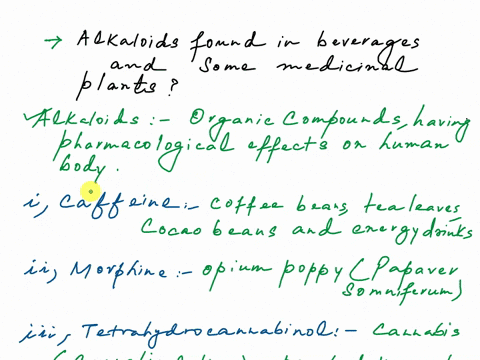 → Alkaloids found in beverages
and some medicinal
plants?
Alkaloids :- Organic Compounds, having
pharmacological effects on human
body.
i, Caffeine :- coffee beans, tea leaves,
Cocao beans and energy drinks
ii, Morphine :- opium poppy (Papaver
somniferum)
iii, Tetrahydrocannabinol :- Cannabis